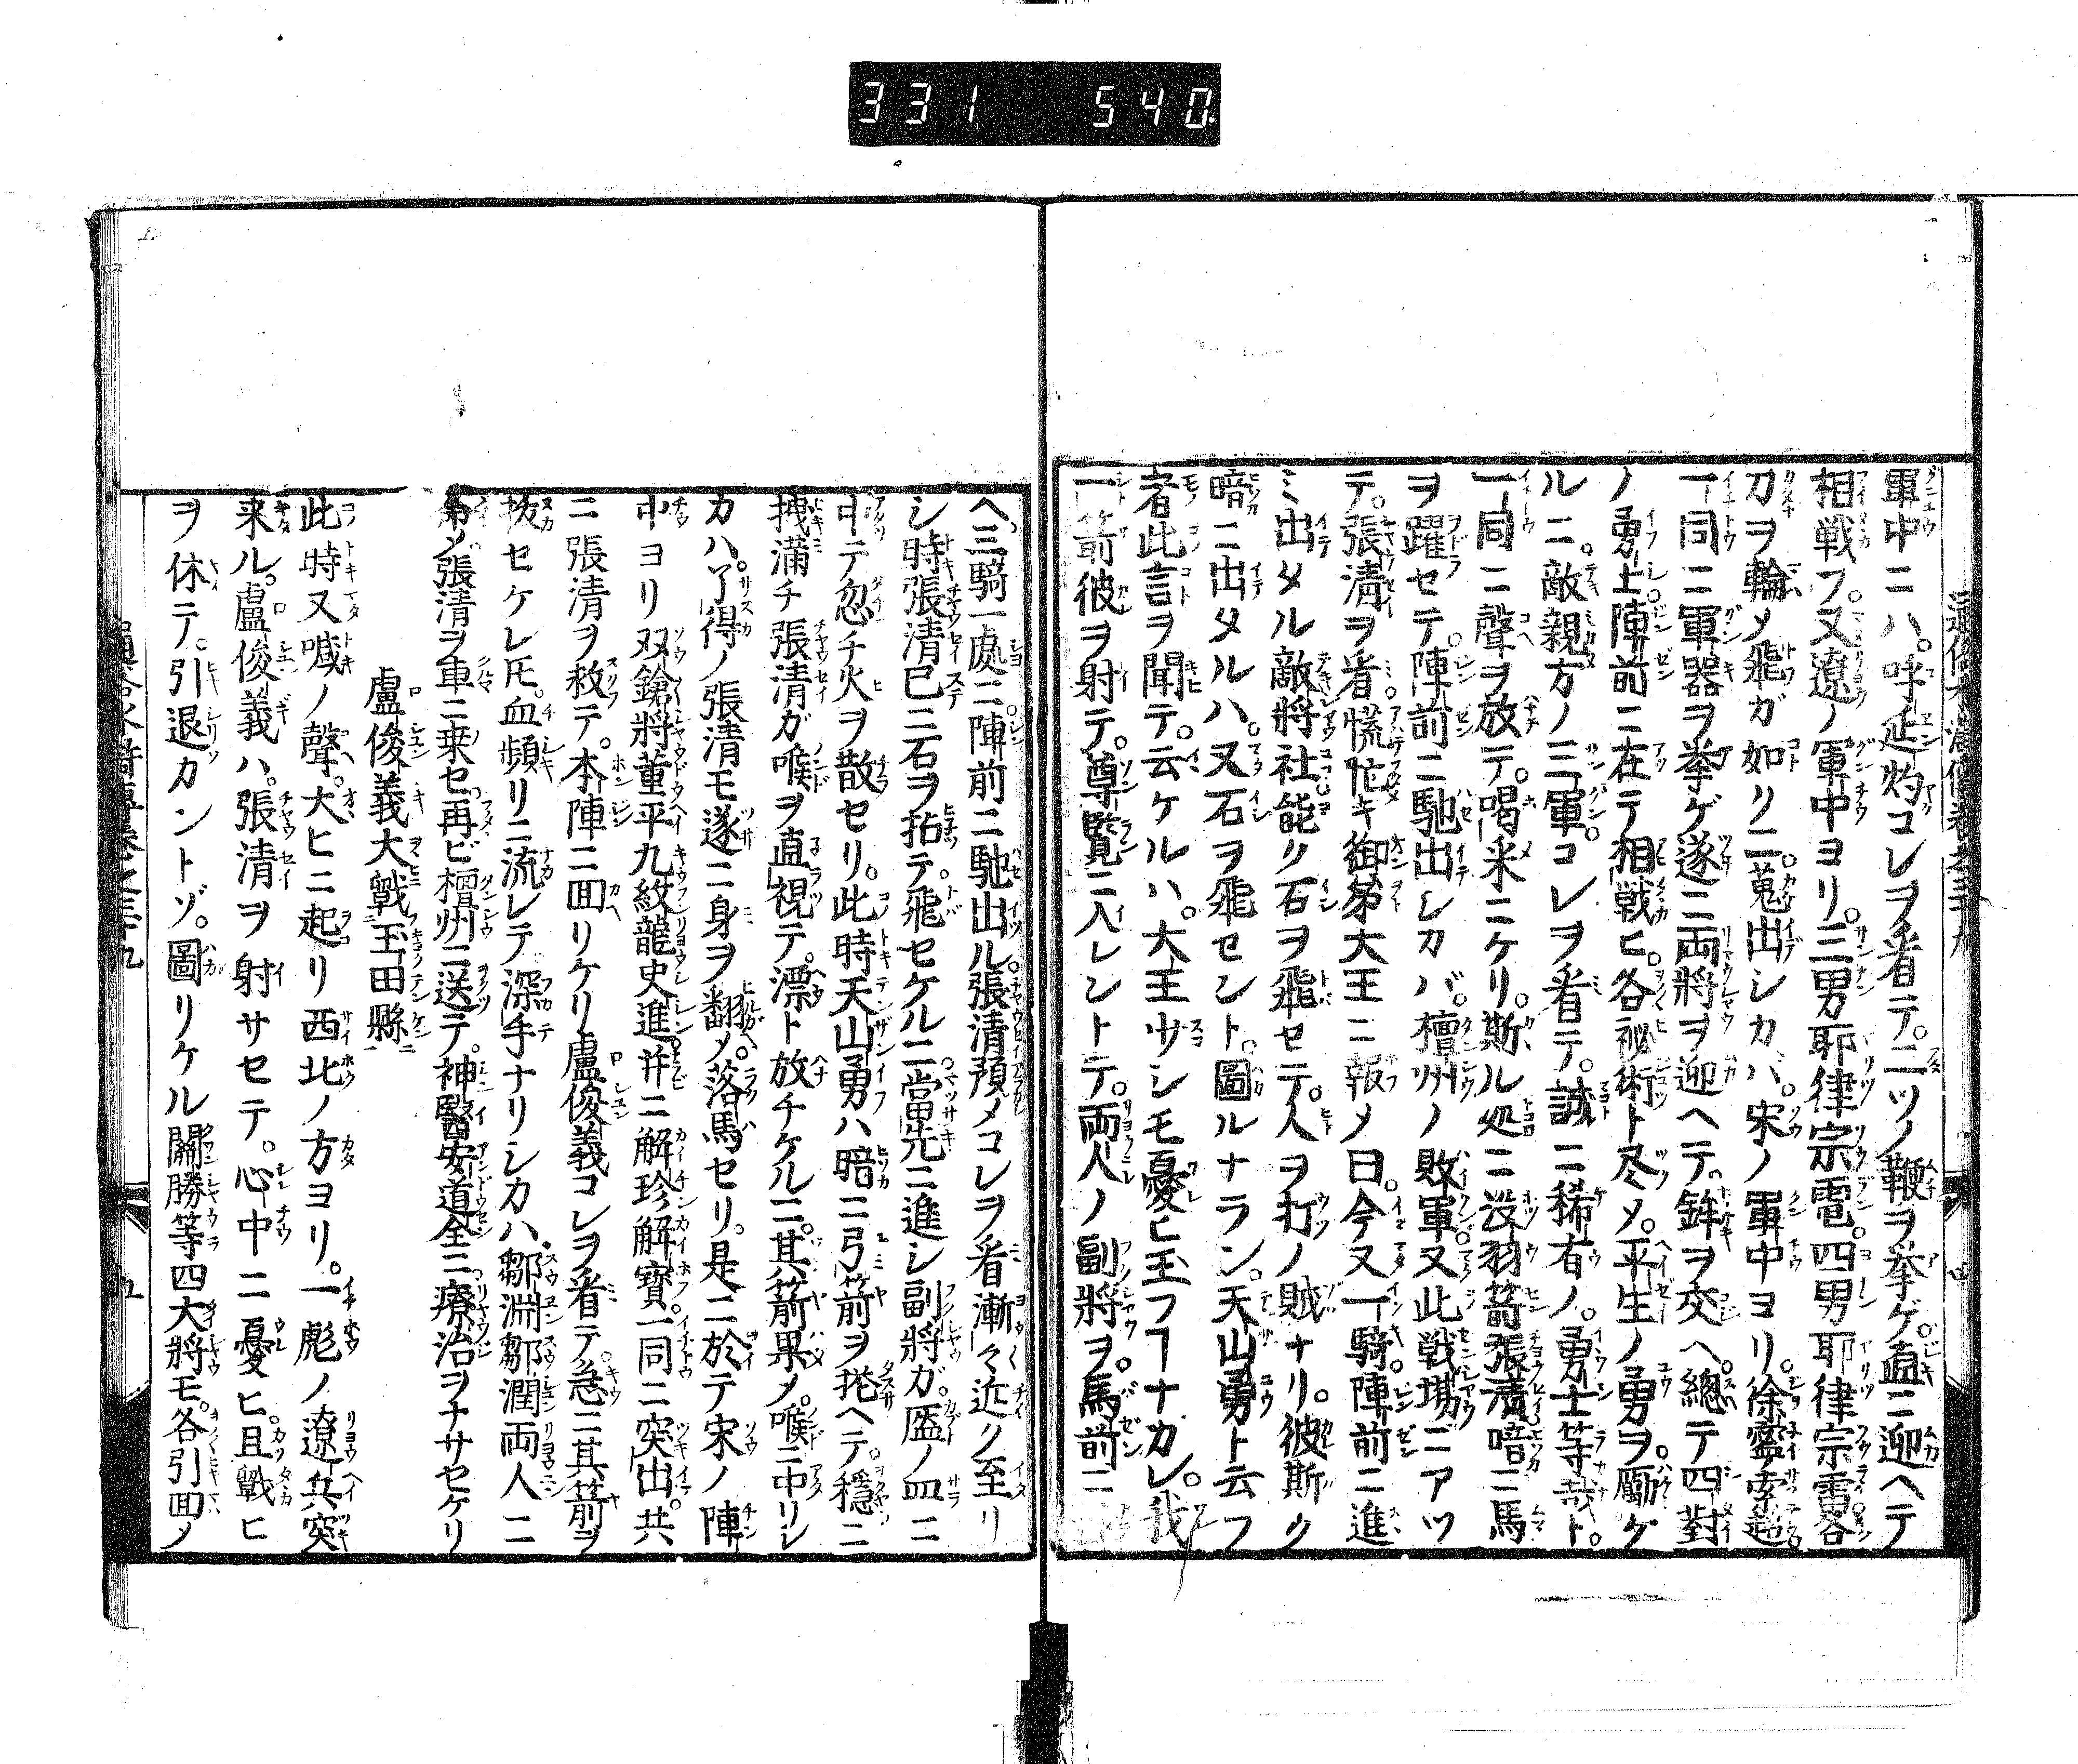 331 540.
軍中ニハ。呼延灼コレヲ看テ。二ツノ鞭ヲ挙ゲ。直ニ迎ヘテ
相戦フ。又遼ノ軍中ヨリ。三男耶律宗電。四男耶律宗雷。各
刀ヲ輪メ飛ガ如ク二蒐出シカバ。宋ノ軍中ヨリ。徐寧索超
一同ニ軍器ヲ挙ゲ遂ニ両將ヲ迎ヘテ。鉾ヲ交ヘ。總テ四對
ノ勇士陣前ニ在テ相戦ヒ。各祕術ト尽メ。平生ノ勇ヲ。勵ケ
ルニ。敵親方ノ三軍。コレヲ看テ。誠ニ稀有ノ。勇士等哉ト。
一同ニ聲ヲ放テ。喝采ニケリ。斯ル処ニ沒羽箭張清暗ニ馬
ヲ躍セテ。陣前ニ馳出シカバ。檀州ノ敗軍又此戦場ニアツ
テ。張清ヲ看。慌忙キ御弟大王ニ報メ曰。今又一騎。陣前ニ進
ミ出タル敵將社能ク石ヲ飛セテ。人ヲ打ノ賊ナリ。彼斯ク
暗ニ出タルハ。又石ヲ飛セント。圖ルナラン。天山勇ト云フ
者此言ヲ聞テ。云ケルハ。大王少シモ憂ヒ玉フヿナカレ。我
一箭彼ヲ射テ。尊覧ニ入レントテ。両人ノ副將ヲ。馬前ニ
ヘ。三騎一處ニ陣前ニ馳出ル。張清預メコレヲ看漸々近ク至リ
シ時張清已ニ石ヲ拈テ。飛セケルニ。當先ニ進シ副將ガ。盔ノ皿ニ
中テ忽チ火ヲ散セリ。此時天山勇ハ暗ニ弓箭ヲ挽ヘテ。穩ニ
拽滿チ張清ガ喉ヲ直視テ。漂ト放チケルニ。其箭果メ。喉ニ中リシ
カハ。了得ノ張清モ遂ニ身ヲ翻メ。落馬セリ。是ニ於テ宋ノ陣
中ヨリ双鎗將董平九紋龍史進。幷ニ解珍解寶。一同ニ突出。共
ニ張清ヲ救テ。本陣ニ回リケリ盧俊義コレヲ看テ。急ニ其箭ヲ
拔セケレ𪜈。血頻リニ流レテ深手ナリシカハ。鄒淵鄒潤両人ニ
命メ張清ヲ車ニ乗セ再ビ檀州ニ送テ。神醫安道全ニ。療治ヲナサセケリ
盧俊義大戰玉田縣
此時又喊ノ聲。大ヒニ起リ西北ノ方ヨリ。一彪ノ遼兵突
来ル。盧俊義ハ。張清ヲ射サセテ。心中ニ憂ヒ。且戰ヒ
ヲ休テ。引退カントゾ。圖リケル關勝等四大將モ。各引回ノ